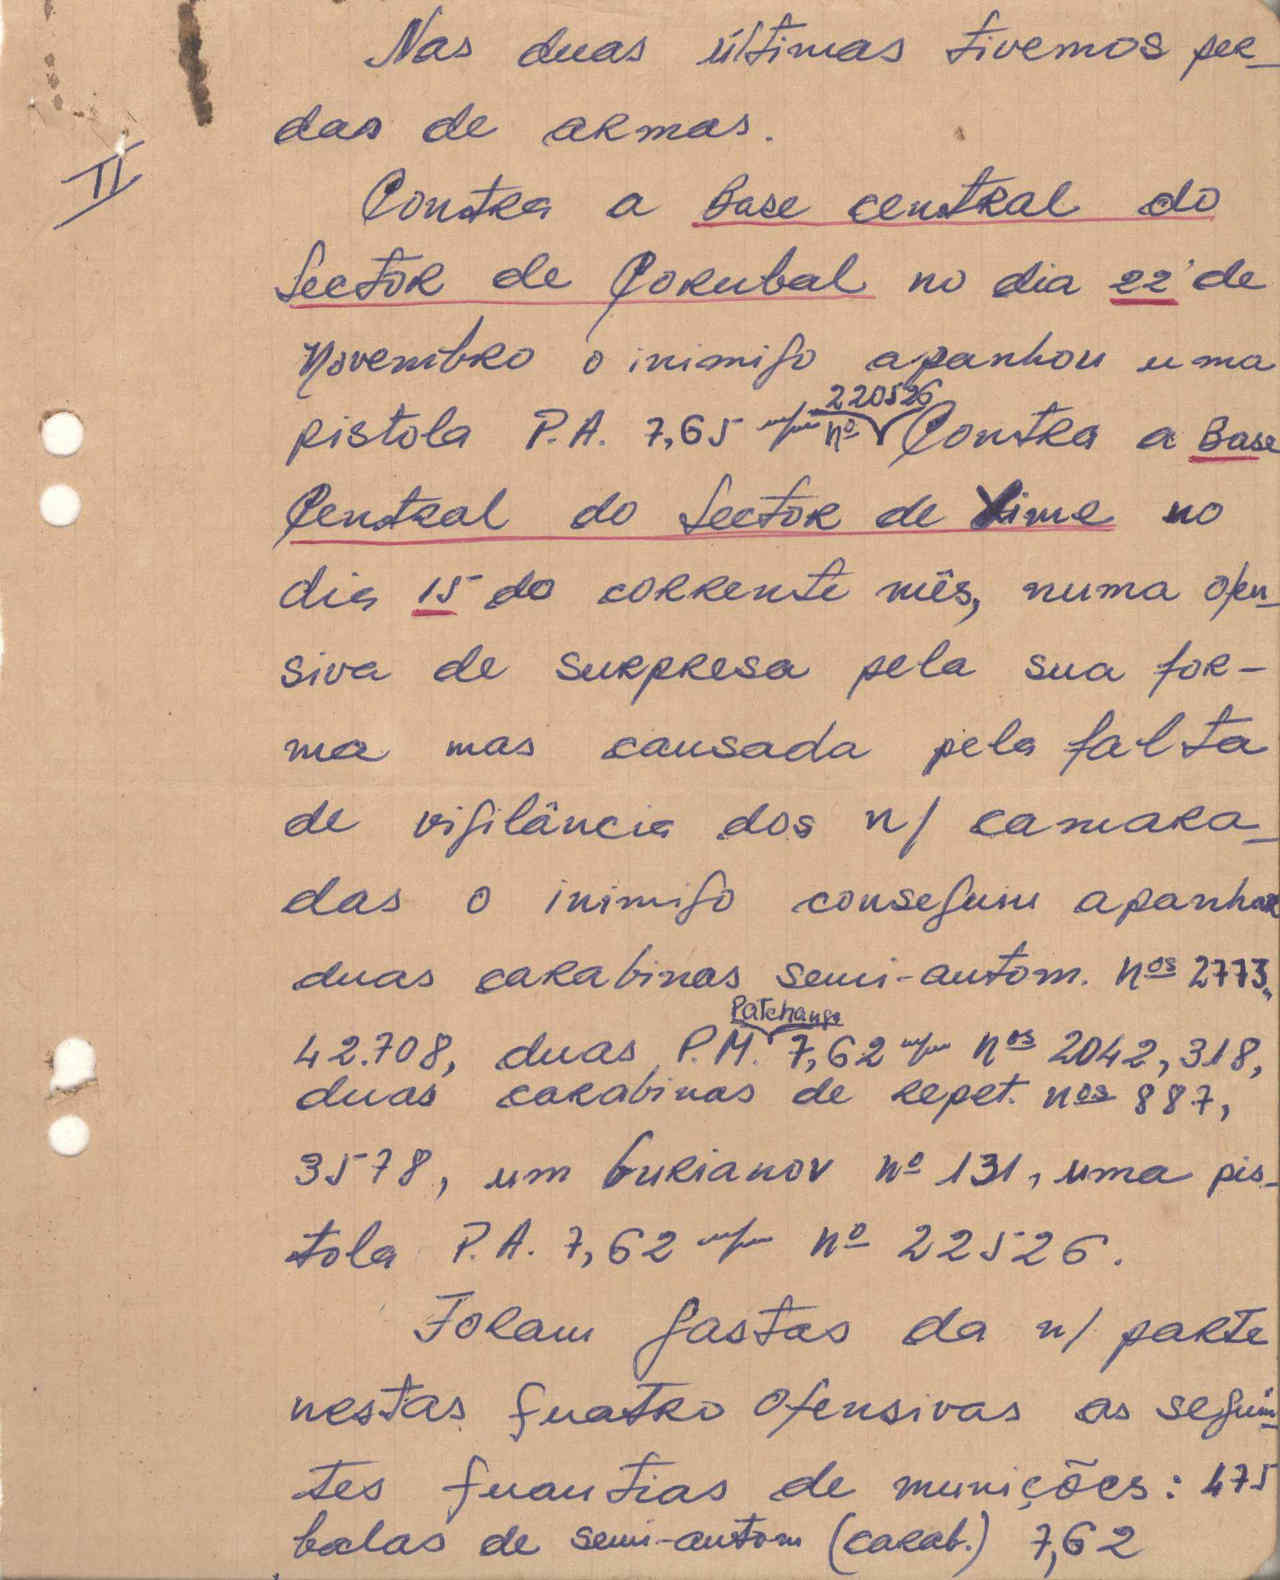 Nas duas últimas tivemos per-
das de armas.
II
Contra a Base central do
Sector de Corubal no dia 22 de
Novembro o inimigo apanhou uma
220526
pistola P.A. 7,65 m/m nº Contra a Base
Central do Sector de Xime no
dia 15 do corrente mês, numa ofen-
siva de surpresa pela sua for-
ma mas causada pela falta
de vigilância dos n/ camara-
das o inimigo conseguiu apanhar
duas carabinas semi-autom. nos 2773,
Patchanga
42.708, duas P.M. 7,62 m/m nos 2042, 318,
duas carabinas de repet. nos 887,
3578, um Gurianov nº 131, uma pis-
tola P.A. 7,62 m/m nº 22526.
Foram gastas da n/ parte
nestas quatro ofensivas as seguin-
tes quantias de munições: 475
balas de semi-autom (carab.) 7,62